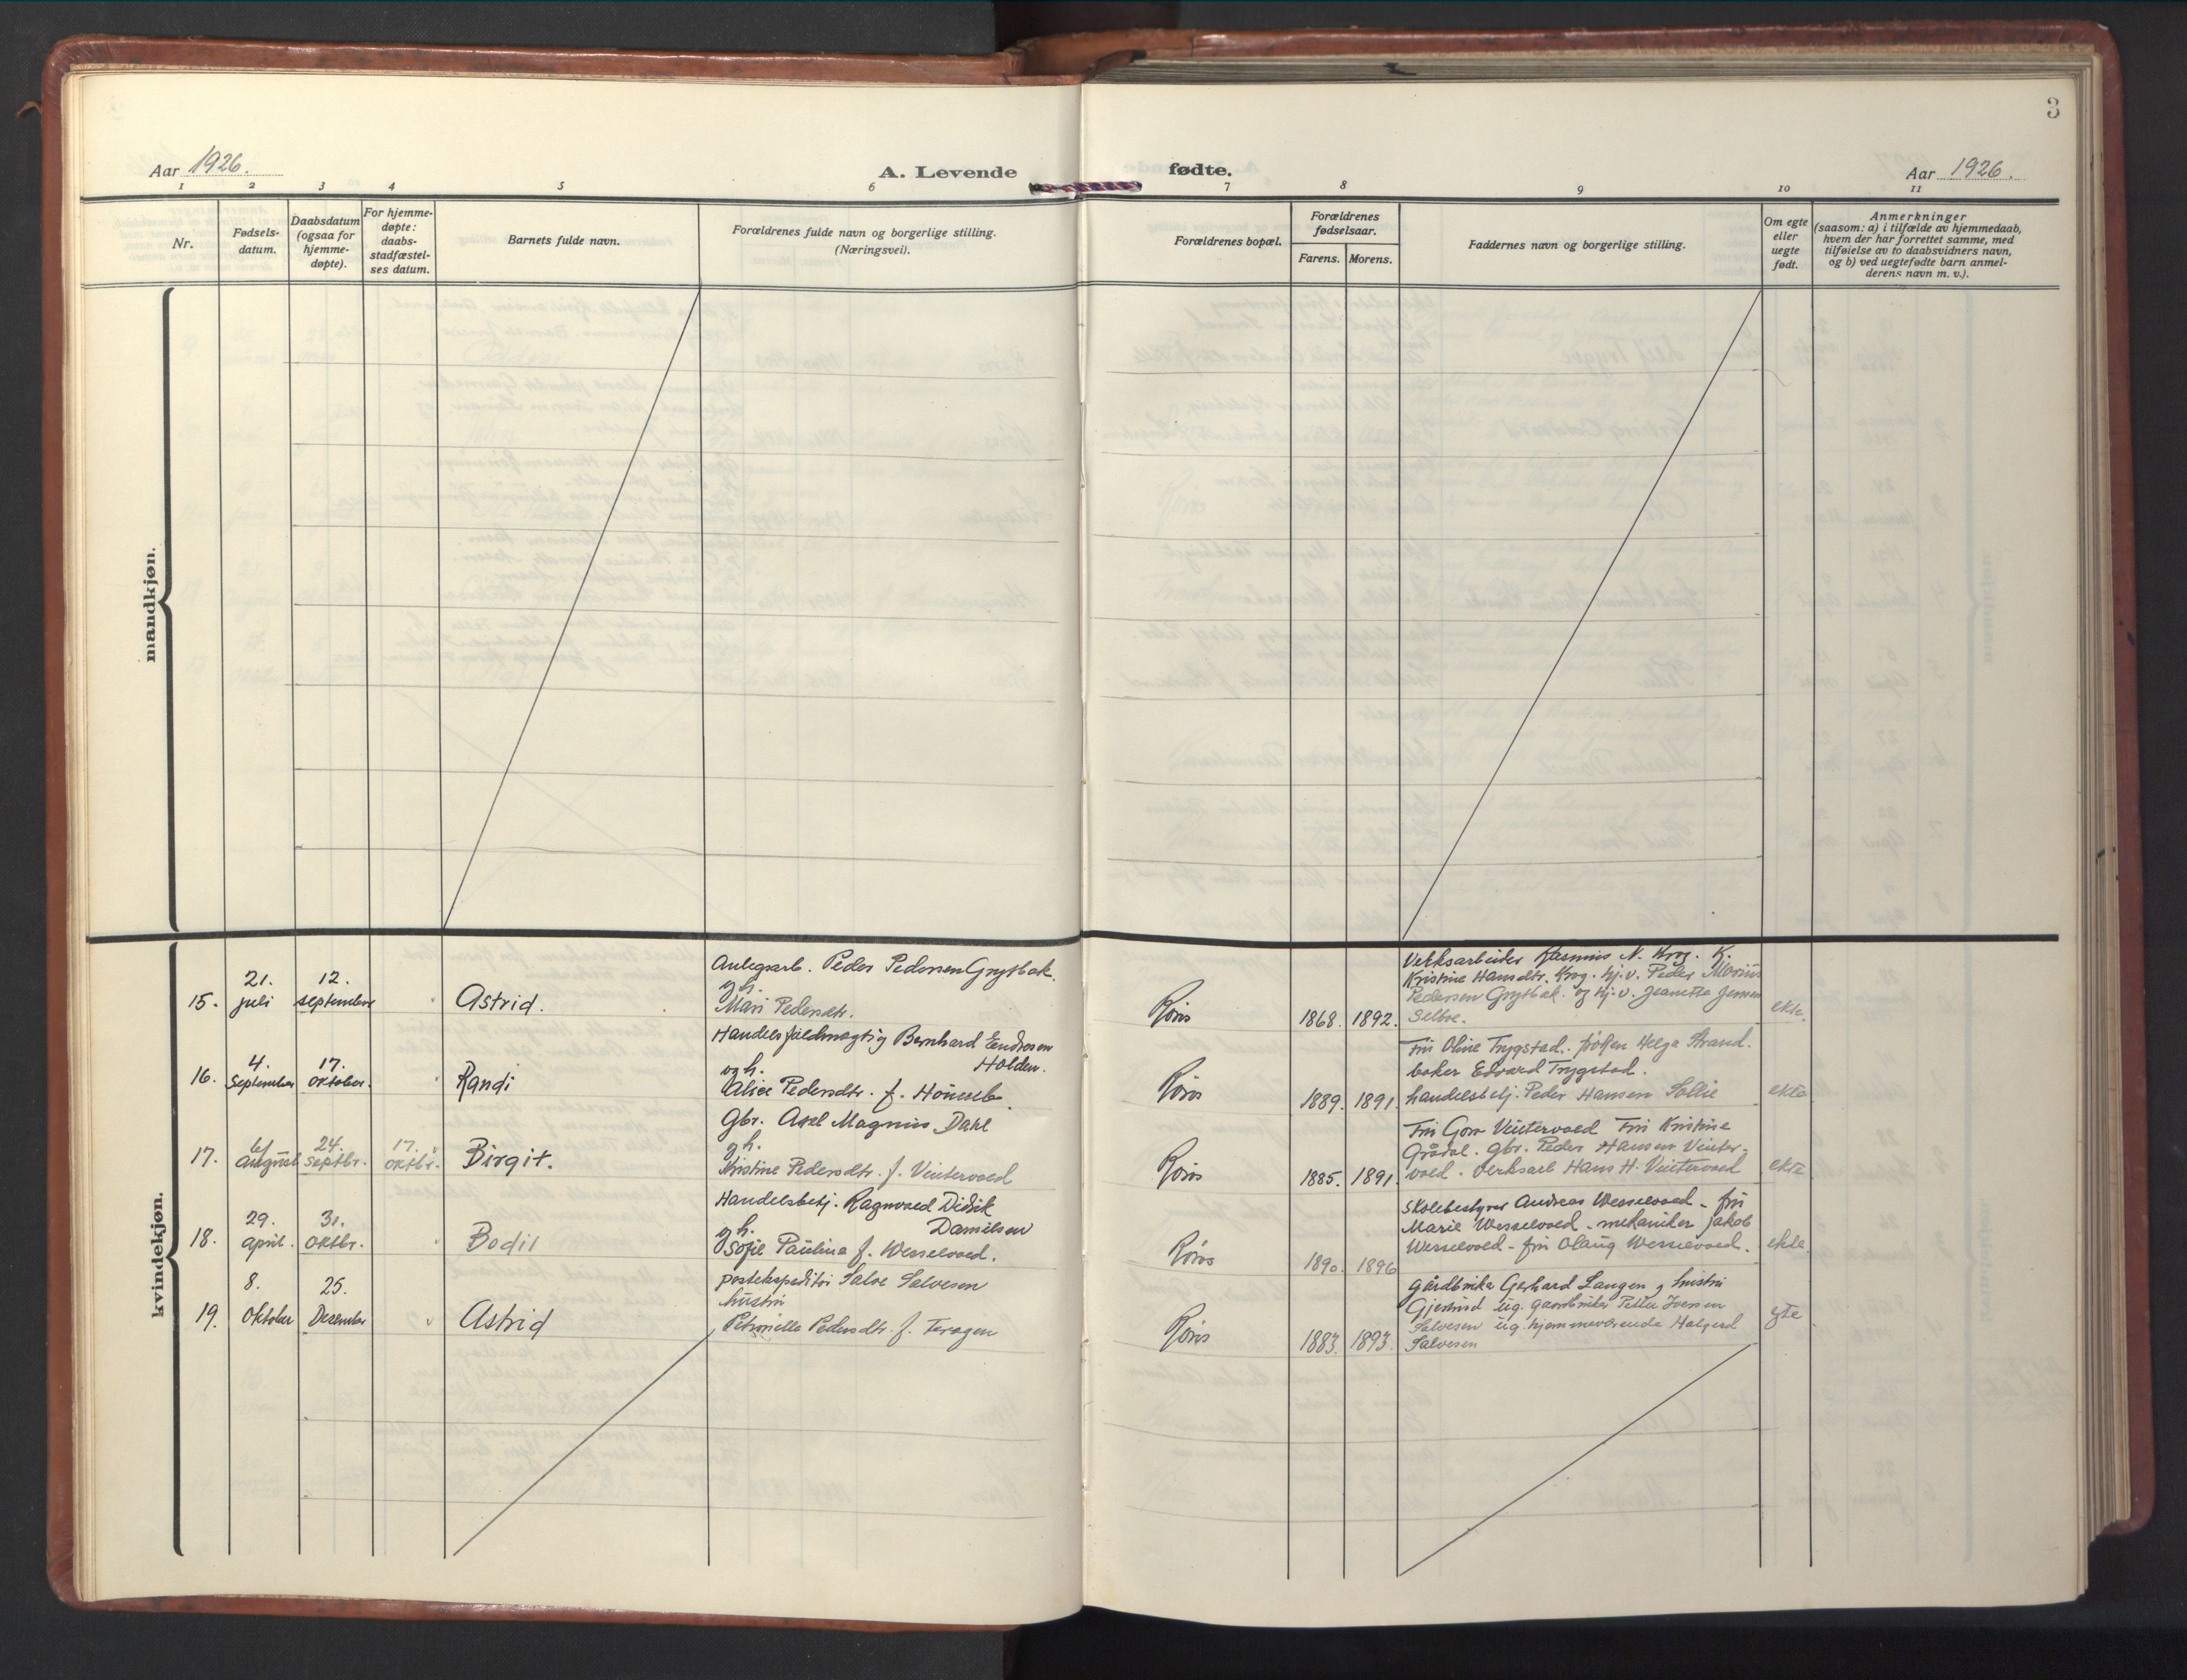 3
Aar 1926.
A. Levende
fødte.
Aar 1926.
1 2 3 4 5 6 7 8 9 10 11
Nr.
Fødsels-
datum.
Daabsdatum
(ogsaa for
hjemme-
døpte).
For hjemme-
døpte:
daabs-
stadfæstel-
ses datum.
Barnets fulde navn.
Forældrenes fulde navn og borgerlige stilling.
(Næringsvei).
Forældrenes bopæl.
Forældrenes
fødselsaar.
Farens. Morens.
Faddernes navn og borgerlige stilling.
Om egte
eller
uegte
født.
Anmerkninger
(saasom: a) i tilfælde av hjemmedaab,
hvem der har forrettet samme, med
tilføielse av to daabsvidners navn,
og b) ved uegtefødte barn anmel-
derens navn m. v.).
mandkjøn.
kvindekjøn.
15.
21.
juli
12.
september
Astrid.
Anlegsarb. Peder Pedersen Grytbak
og h.
Mari Pedersdtr.
Røros
1868. 1892.
Verksarbeider Rasmus N. Krog. K.
Kristine Hansdtr. Krog. hj.v. Peder Marius
Pedersen Grytbak. og hj.v. Jeanette Jensen
Selboe.
ekte.
16.
4.
September
17.
Oktober.
Randi
Handelsfuldmægtig Bernhard Endresen
Holden.
og h.
Alice Pedersdtr. f.
Røros
1889. 1891.
Fru Oline Trygstad. frøken Helga Strand.
baker Edvard Trygstad.
handelsbetj. Peder Hansen Sollie
ekte
17.
august
24.
Septbr.
17.
Oktbr.
Birgit.
Gbr. Axel Magnus Dahl
og h.
Kristine Pedersdtr. f. Vintervold
Røros
1885. 1891.
Fru Vintervold Fru Kristine
Grådal. Gbr. Peder Hansen Vinter-
vold. Verksarb Hans H. Vintervold
ekte
18.
29.
april.
31.
Oktbr.
Bodil
Handelsbetj. Ragnvald Didrik
Danielsen
og h.
Sofie Paulina f. Wesselvold.
Røros
1890. 1896
Skolebestyrer Andreas Wesselvold - fru
Marie Wesselvold - mekaniker Jakob
Wesselvold - fru Olaug Wesselvold.
ekte
19.
8.
Oktober
25.
Desember
Astrid
postekspeditør Salve Salvesen
hustru
Petronelle Pedersdtr. f. Feragen
Røros
1883. 1893.
gårdbruker Gerhard Langen og hustru
Gjertrud ug. gaardbruker Petter Iversen
Salvesen ug. hjemmeværende Halgerd
Salvesen
egte